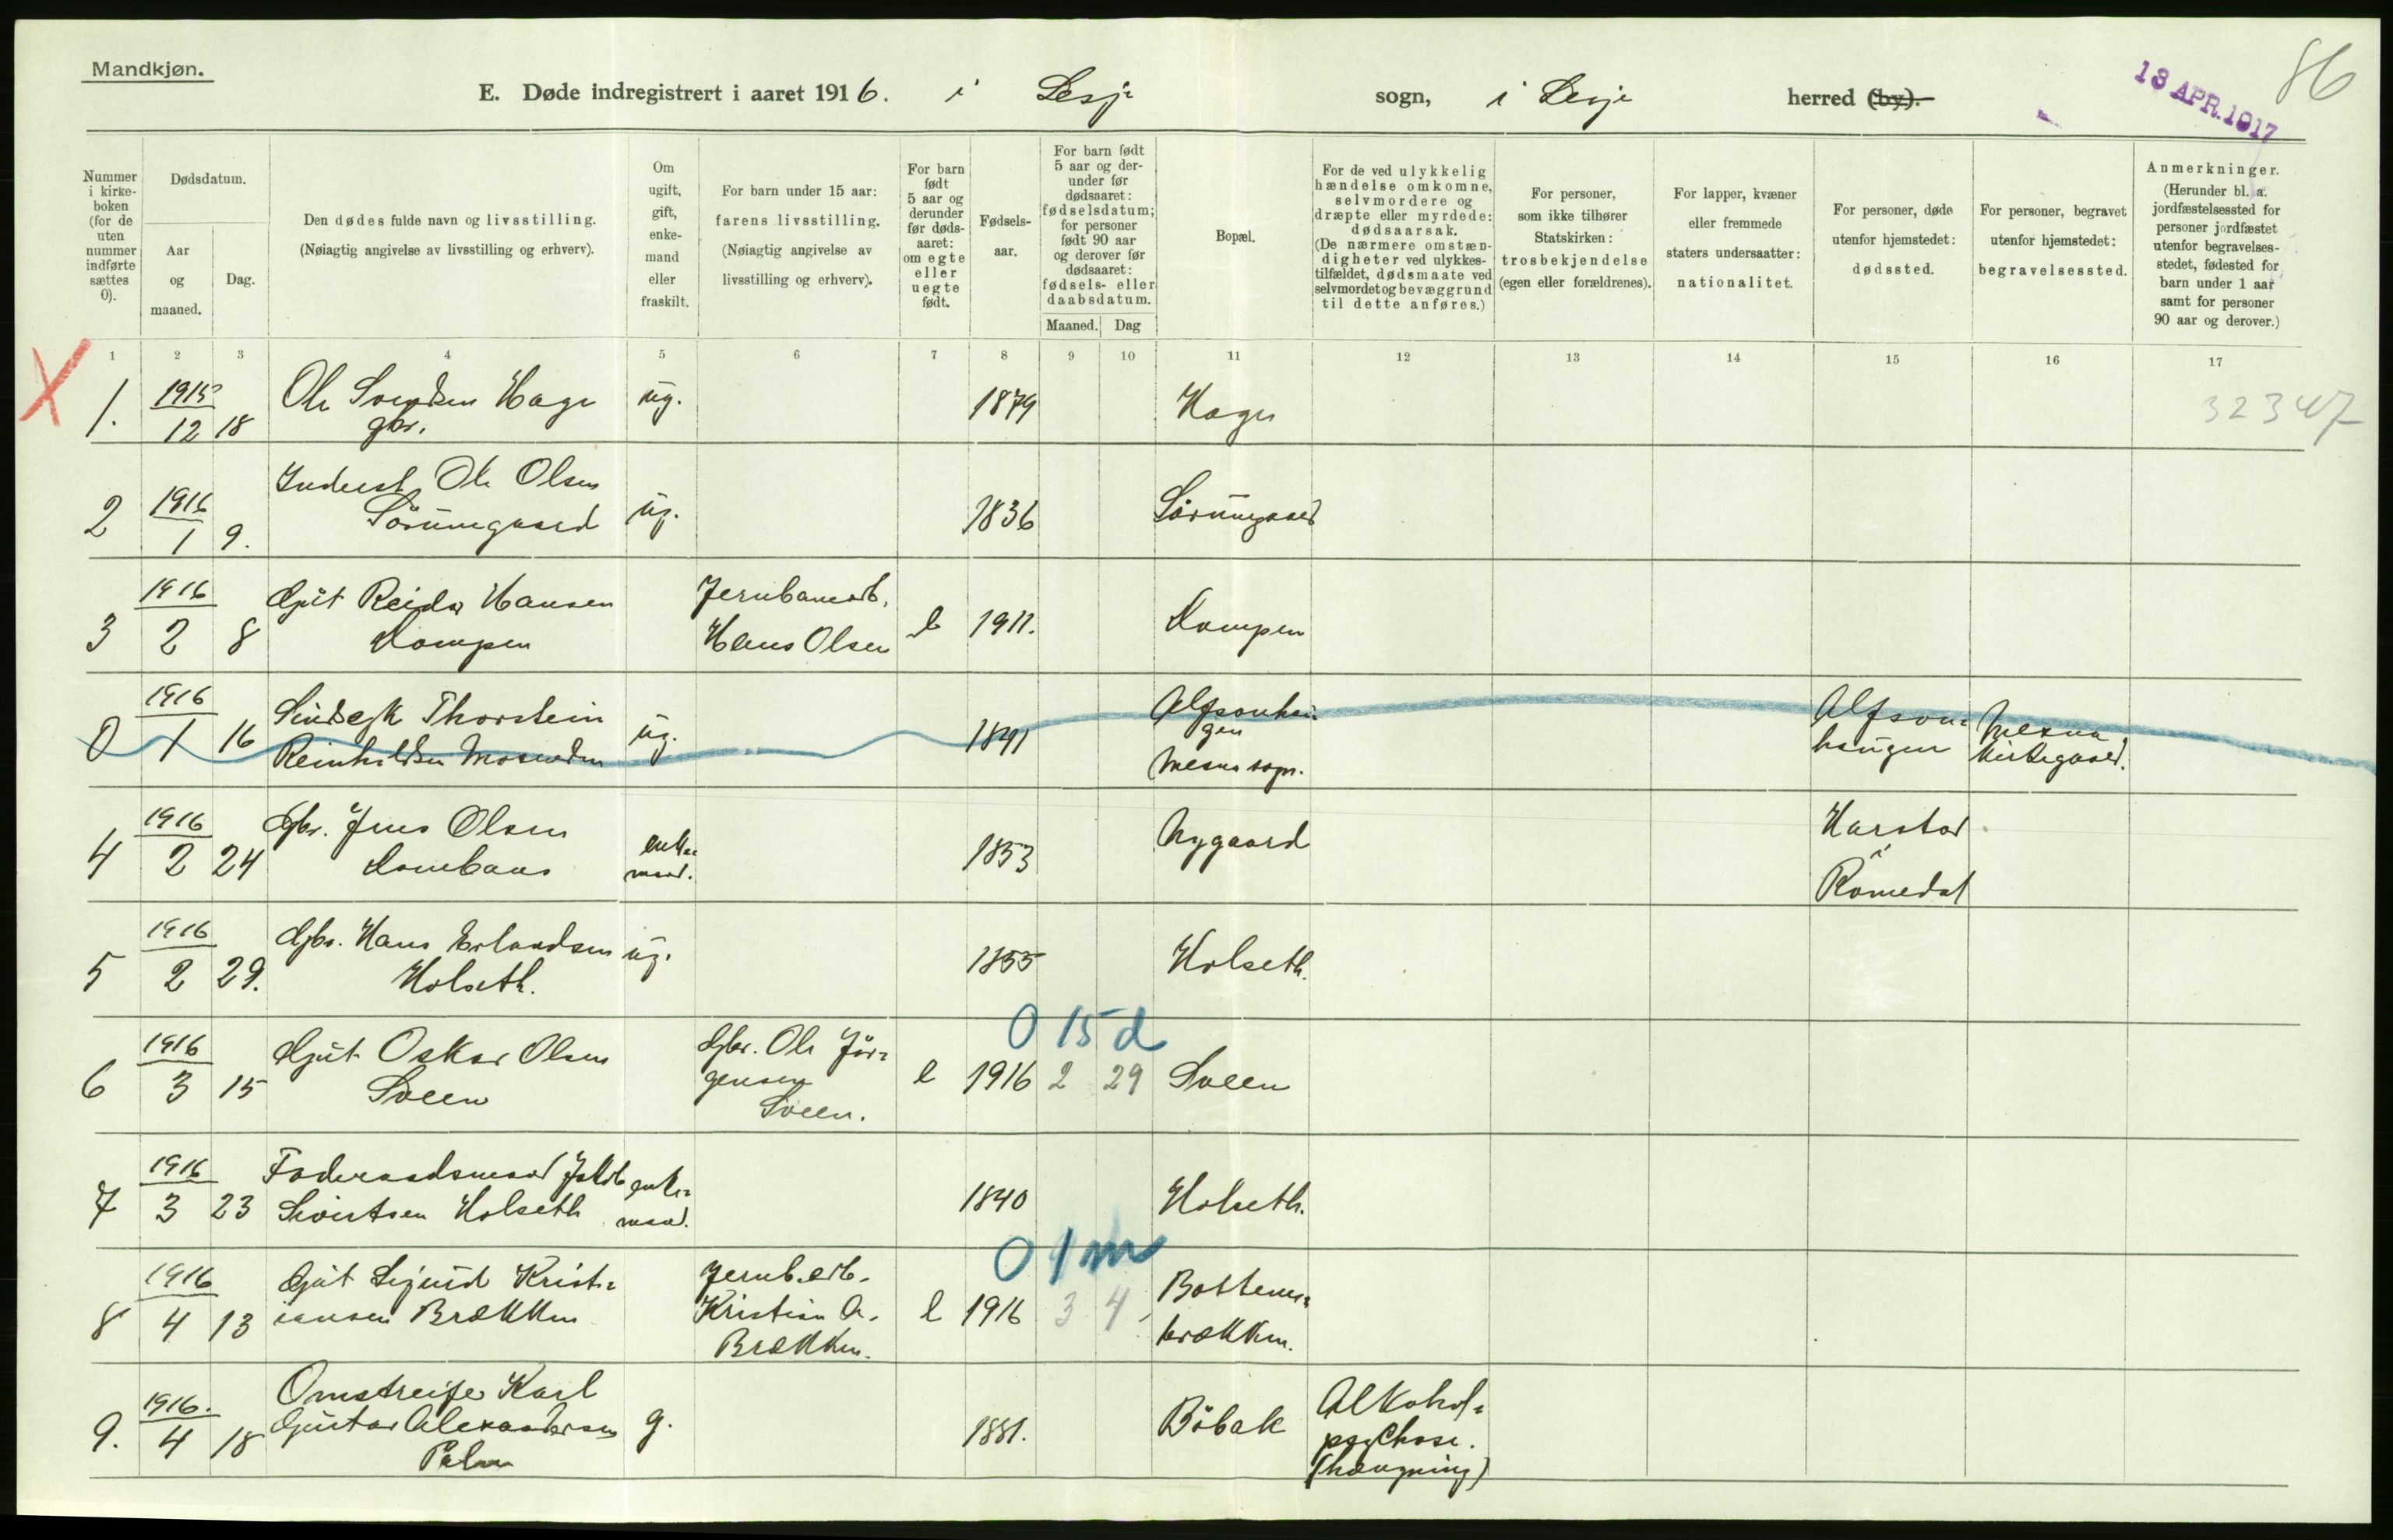 Mandkjøn.
E. Døde indregistrert i aaret 1916. i Lesje sogn, i Lesje herred (by).
13 APR. 1917
86
Nummer i kirke-boken (for de uten nummer indførte sættes 0).
Dødsdatum.
Aar og maaned.
Dag.
Den dødes fulde navn og livsstilling.
(Nøiagtig angivelse av livsstilling og erhverv).
Om ugift, gift, enke-mand eller fraskilt.
For barn under 15 aar: farens livsstilling.
(Nøiagtig angivelse av livsstilling og erhverv).
For barn født 5 aar og derunder før døds-aaret: om egte eller uegte født.
Fødsels-aar.
For barn født 5 aar og der-under før dødsaaret: fødselsdatum; for personer født 90 aar og derover før dødsaaret: fødsels- eller daabsdatum.
Maaned. Dag
Bopæl.
For de ved ulykkelig hændelse omkomne, selvmordere og dræpte eller myrdede: dødsaarsak.
(De nærmere omstæn-digheter ved ulykkes-tilfældet, dødsmaate ved selvmordet og bevæggrund til dette anføres.)
For personer, som ikke tilhører Statskirken: trosbekjendelse (egen eller forældrenes).
For lapper, kvæner eller fremmede staters undersaatter: nationalitet.
For personer, døde utenfor hjemstedet: dødssted.
For personer, begravet utenfor hjemstedet: begravelsessted.
Anmerkninger.
(Herunder bl. a. jordfæstelsessted for personer jordfæstet utenfor begravelses-stedet, fødested for barn under 1 aar samt for personer 90 aar og derover.)
1 2 3 4 5 6 7 8 9 10 11 12 13 14 15 16 17
X
1. 1915 12 18 Ole Hage ug. 1879 Hage 32347
gbr.
2 1916 1 9. Inderst Ole Olsen
Sørumgaard ug. 1836 Sørumgaard
3 1916 2 8 Gut Reidar Hansen
Dompen Jernbanearb.
Hans Olsen e 1911. Dompen
0 1916 1 16 Thorstein
Mosenden ug. 1891
Mesna sogn.
Alfson-
haugen Mesna
kirkegaard.
4 1916 2 24 Gbr. Jens Olsen
Dombaas enke-
mand. 1853 Nygaard
Harstad
i
Romedal
5 1916 2 29. Gbr. Hans Erlandsen
Holseth. ug. 1855 Holseth.
0 15 d
6 1916 3 15 Gut Oskar Olsen
Sveen Gbr. Ole Jør-
gensen
Sveen. e 1916 2 29 Sveen
7 1916 3 23 Foderaadsmand Jakob
Sivertsen Holseth enke-
mand. 1840 Holseth.
0 1 m
8 1916 4 13 Gut Sigurd Krist-
iansen Brækken Jernb.arb.
Kristian A.
Brækken. e 1916 3 4 Bottem-
brækken.
9. 1916. 4 18 Omstreifer Karl
Gustav Alexandersen
Palm g. 1881. Bøbak Alkohol-
psychose.
(hængning)